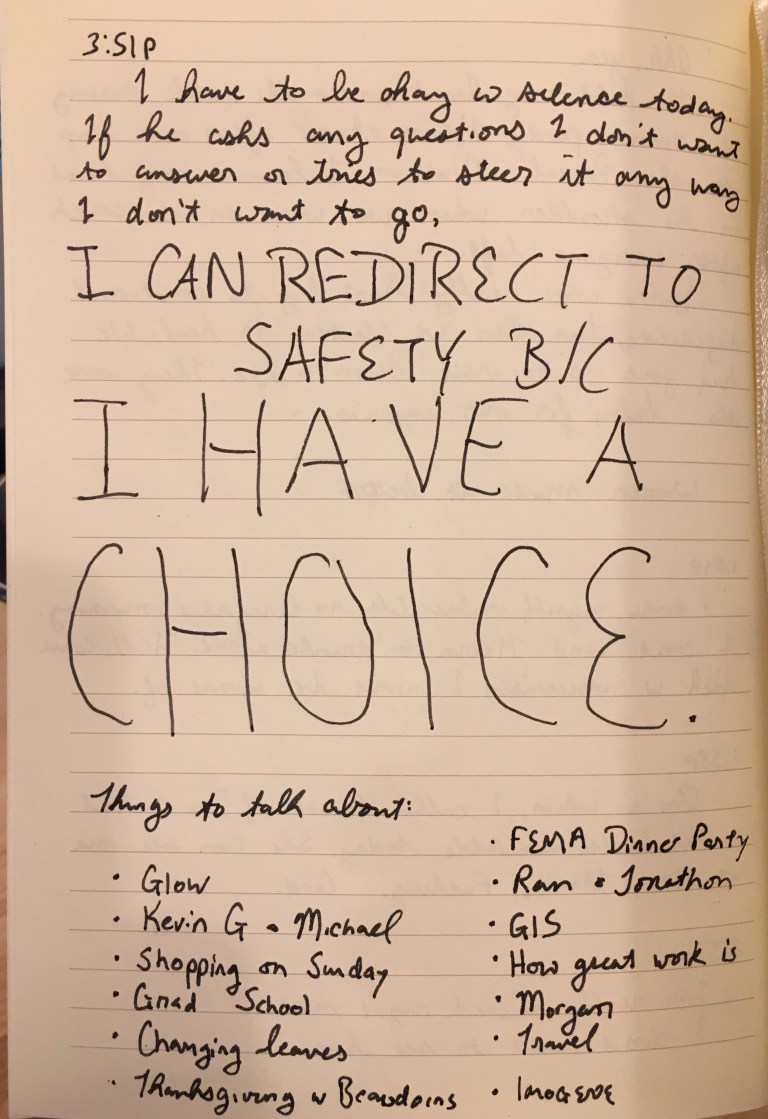 3:51p
I have to be okay w silence today.
If he asks any questions I don't want
to answer or tries to steer it any way
I don't want to go,
I CAN REDIRECT TO
SAFETY B/C
I HAVE A
CHOICE.
Things to talk about:
· Glow
· Kevin G & Michael
· Shopping on Sunday
· Grad School
· Changing leaves
· Thanksgiving w Beaudoins
· FEMA Dinner Party
· Ran & Jonathon
· GIS
· How great work is
· Morgan
· Travel
· IMOGENE